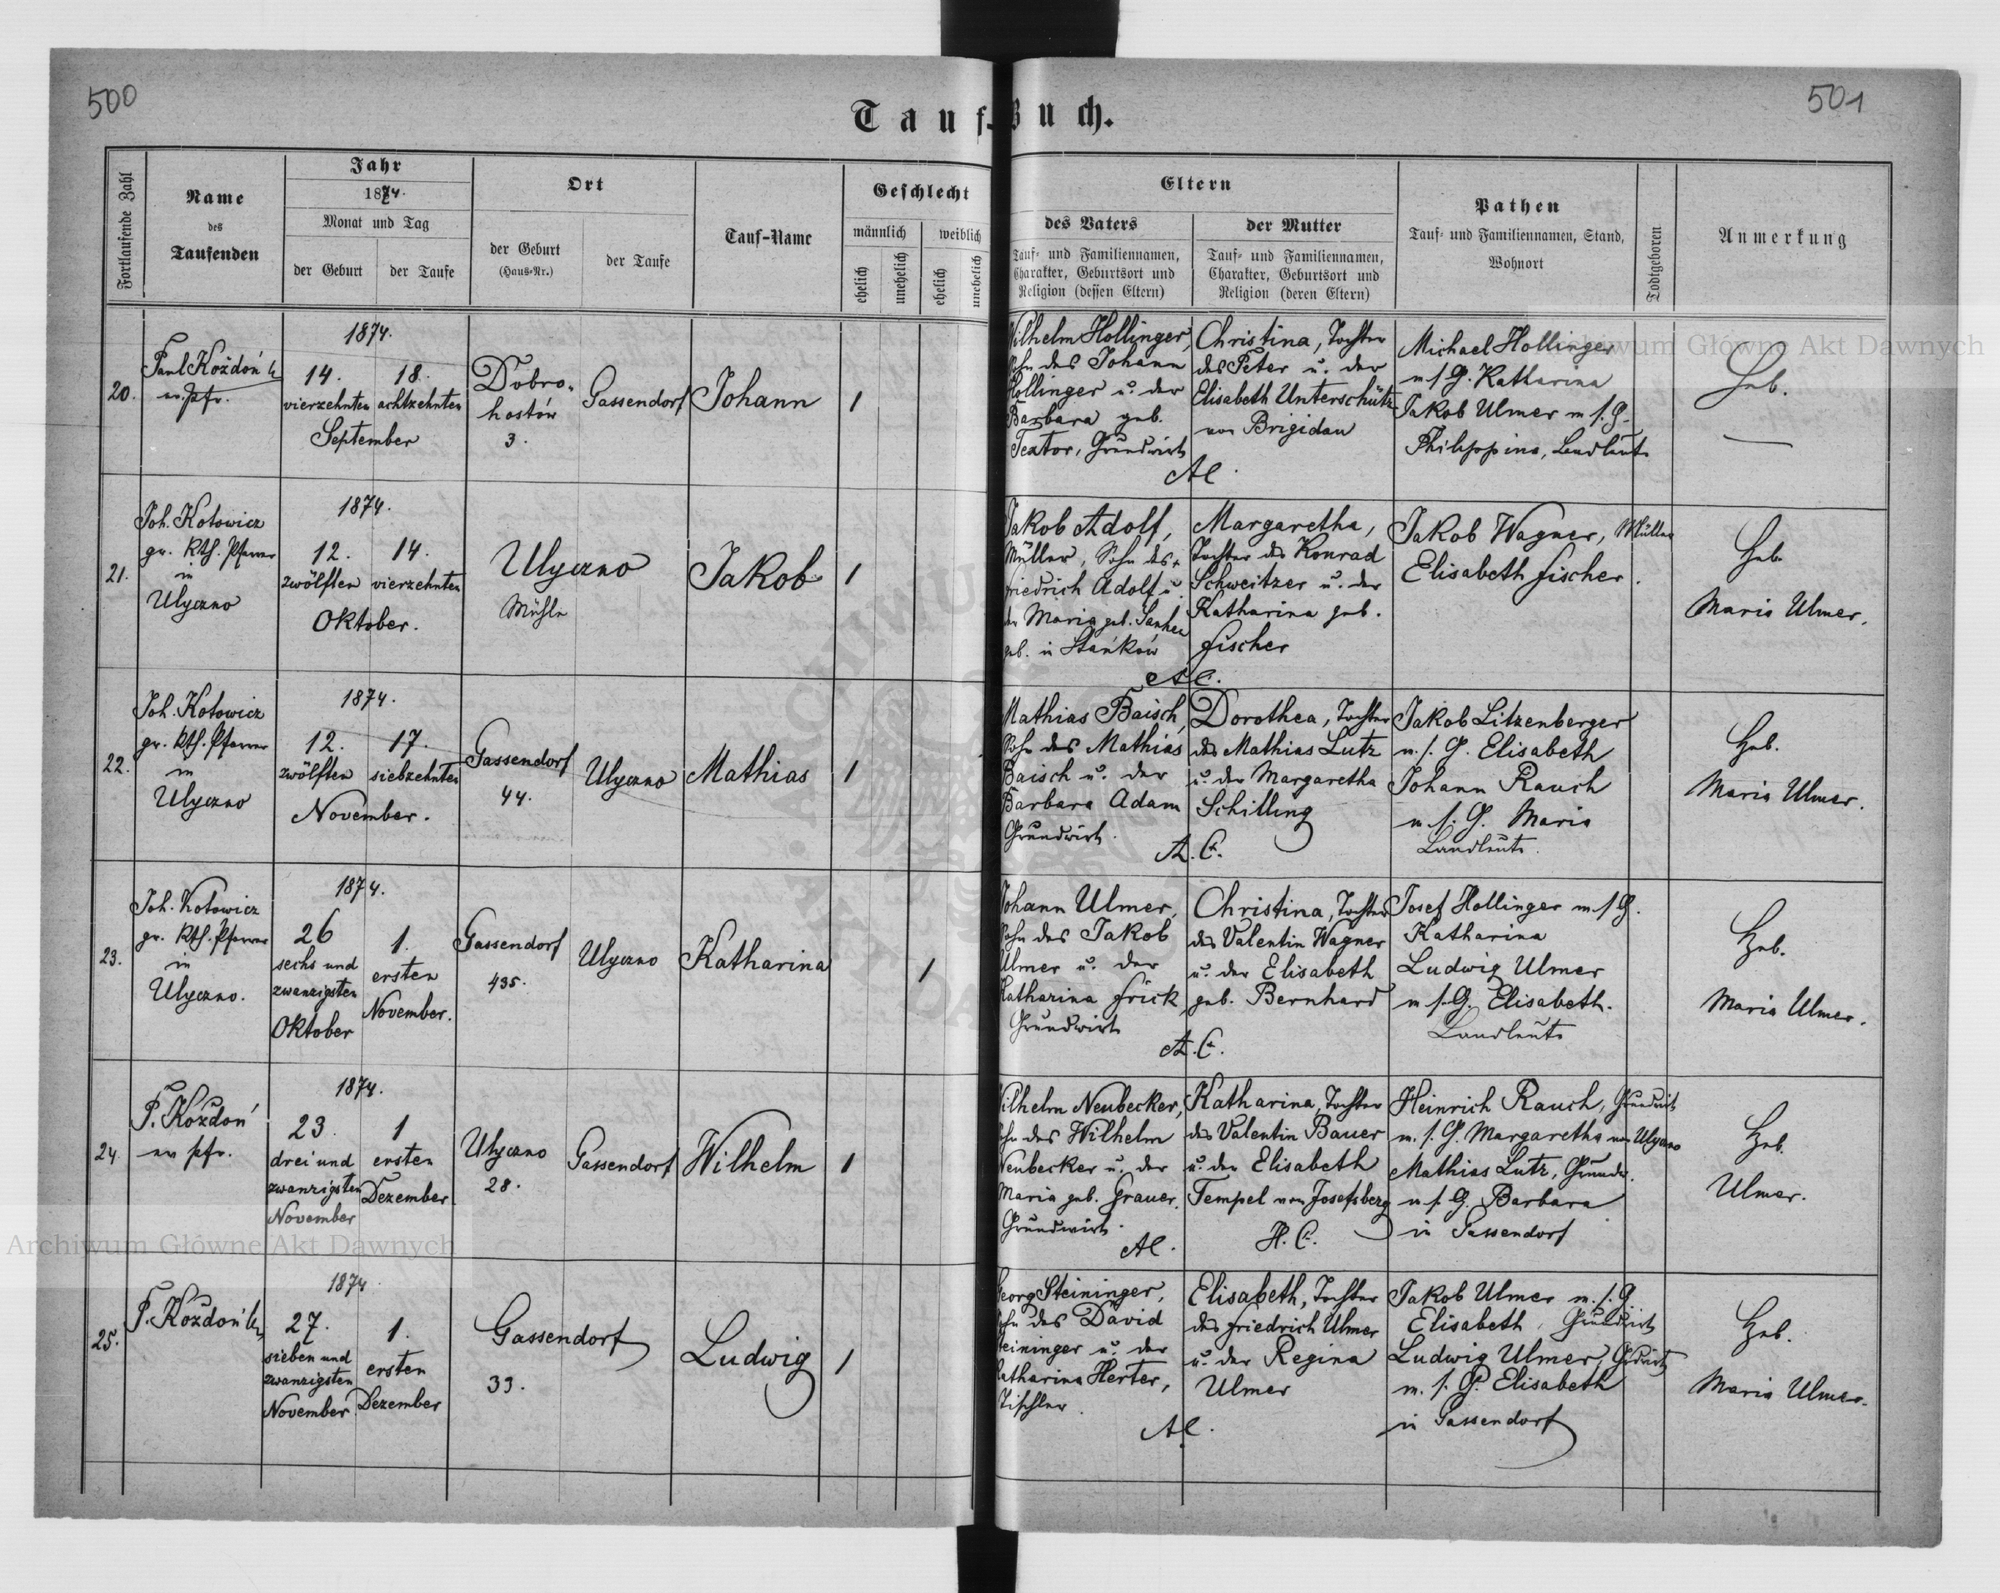 500
501
Tauf-Buch.
Fortlaufende Zahl
Name
des
Taufenden
Jahr
1874.
Monat und Tag
der Geburt
der Taufe
Ort
der Geburt
(Haus-Nr.)
der Taufe
Tauf-Name
Geschlecht
männlich
weiblich
ehelich
unehelich
ehelich
unehelich
Eltern
des Vaters
Tauf- und Familiennamen,
Charakter, Geburtsort und
Religion (dessen Eltern)
der Mutter
Tauf- und Familiennamen,
Charakter, Geburtsort und
Religion (deren Eltern)
Pathen
Tauf- und Familiennamen, Stand,
Wohnort
Todtgeboren
Anmerkung
20.
Paul Kożdoń
1874.
14.
vierzehnten
18.
achtzehnten
September
Dobro-
hostów
3.
Gassendorf
Johann
1
Wilhelm Hollinger,
Sohn des Johann
Hollinger u. der
Barbara geb.
Textor, Grundwirt
Christina, Tochter
des Peter u. der
Elisabeth Unterschütz
von Brigidau
Michael Hollinger
m. s. G. Katharina
Jakob Ulmer m. s. G.
Philippina, Landleute
Heb.
21.
Joh. Kotowicz
gr. kth. Pfarrer
in
Ulyczno
1874.
12.
zwölften
14.
vierzehnten
Oktober.
Ulyczno
Mühle
Jakob
1
Jakob Adolf,
Müller, Sohn des
Friedrich Adolf u.
der Maria geb.
geb. in Stańków
Margaretha,
Tochter des Konrad
Schweitzer u. der
Katharina geb.
Fischer
A.C.
Jakob Wagner, Müller
Elisabeth Fischer.
Heb.
Maria Ulmer.
22.
Joh. Kotowicz
gr. kth. Pfarrer
in
Ulyczno
1874.
12.
zwölften
17.
siebzehnten
November.
Gassendorf
44.
Ulyczno
Mathias
1
Mathias Baisch,
Sohn des Mathias
Baisch u. der
Barbara Adam
Grundwirt.
Dorothea, Tochter
des Mathias Lutz
u. der Margaretha
Schilling
A.C.
Jakob Litzenberger
m. s. G. Elisabeth
Johann Rauch
m. s. G. Maria
Landleute.
Heb.
Maria Ulmer.
23.
Joh. Kotowicz
gr. kth. Pfarrer
in
Ulyczno.
1874.
26
sechs und
zwanzigsten
Oktober
1.
ersten
November.
Gassendorf
435.
Ulyczno
Katharina
1
Johann Ulmer,
Sohn des Jakob
Ulmer u. der
Katharina Frick,
Grundwirt
Christina, Tochter
des Valentin Wagner
u. der Elisabeth
geb. Bernhard
A.C.
Josef Hollinger m. s. G.
Katharina
Ludwig Ulmer
m. s. G. Elisabeth.
Landleute
Heb.
Maria Ulmer.
24.
P. Kożdoń
1874.
23.
drei und
zwanzigsten
November
1
ersten
Dezember.
Ulyczno
28.
Gassendorf
Wilhelm
1
Wilhelm Neubecker,
Sohn des Wilhelm
Neubecker u. der
Maria geb. Grauer.
Grundwirt.
Katharina, Tochter
des Valentin Bauer
u. der Elisabeth
Tempel von Josefsberg
H.C.
Heinrich Rauch, Grundwirt
m. s. G. Margaretha von Ulyczno
Mathias Lutz, Grundw.
m. s. G. Barbara
in Gassendorf
Heb.
Ulmer.
25.
P. Kożdoń
1874
27.
sieben und
zwanzigsten
November
1.
ersten
Dezember
Gassendorf
33.
Ludwig
1
Georg Steininger,
Sohn des David
Steininger u. der
Katharina Herter,
Tischler.
Elisabeth, Tochter
des Friedrich Ulmer
u. der Regina
Ulmer
Jakob Ulmer m. s. G.
Elisabeth, Grundwirt
Ludwig Ulmer,
m. s. G. Elisabeth
in Gassendorf
Heb.
Maria Ulmer.
Archiwum Główne Akt Dawnych
Archiwum Główne Akt Dawnych